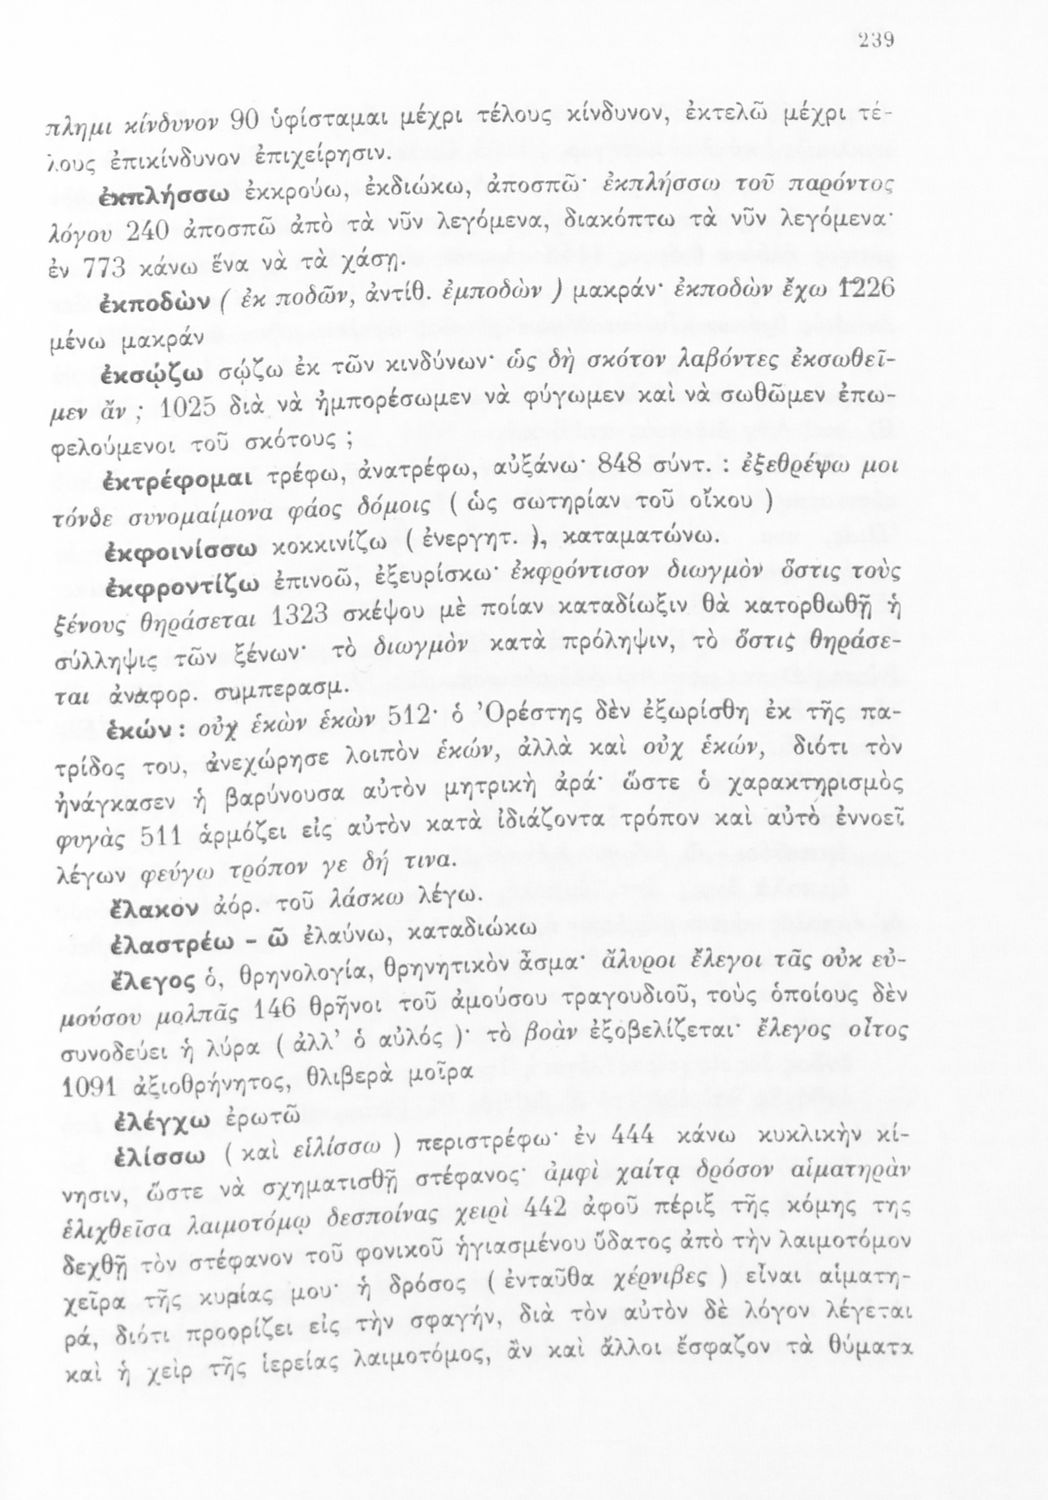 239
πλημι κίνδυνον 90 ὑφίσταμαι μέχρι τέλους κίνδυνον, ἐκτελῶ μέχρι τέ-
λους ἐπικίνδυνον ἐπιχείρησιν.
ἐκπλήσσω ἐκκρούω, ἐκδιώκω, ἀποσπῶ· ἐκπλήσσω τοῦ παρόντος
λόγου 240 ἀποσπῶ ἀπὸ τὰ νῦν λεγόμενα, διακόπτω τὰ νῦν λεγόμενα·
ἐν 773 κάνω ἕνα νὰ τὰ χάσῃ.
ἐκποδὼν ( ἐκ ποδῶν, ἀντίθ. ἐμποδὼν ) μακράν· ἐκποδὼν ἔχω 1226
μένω μακράν
ἐκσῴζω σῴζω ἐκ τῶν κινδύνων· ὡς δὴ σκότον λαβόντες ἐκσωθεῖ-
μεν ἄν ; 1025 διὰ νὰ ἠμπορέσωμεν νὰ φύγωμεν καὶ νὰ σωθῶμεν ἐπω-
φελούμενοι τοῦ σκότους ;
ἐκτρέφομαι τρέφω, ἀνατρέφω, αὐξάνω· 848 σύντ. : ἐξεθρέψω μοι
τόνδε συνομαίμονα φάος δόμοις ( ὡς σωτηρίαν τοῦ οἴκου )
ἐκφοινίσσω κοκκινίζω ( ἐνεργητ. ), καταματώνω.
ἐκφροντίζω ἐπινοῶ, ἐξευρίσκω· ἐκφρόντισον διωγμὸν ὅστις τοὺς
ξένους θηράσεται 1323 σκέψου μὲ ποίαν καταδίωξιν θὰ κατορθωθῇ ἡ
σύλληψις τῶν ξένων· τὸ διωγμὸν κατὰ πρόληψιν, τὸ ὅστις θηράσε-
ται ἀναφορ. συμπερασμ.
ἑκών : οὐχ ἑκὼν ἑκὼν 512· ὁ Ὀρέστης δὲν ἐξωρίσθη ἐκ τῆς πα-
τρίδος του, ἀνεχώρησε λοιπὸν ἑκών, ἀλλὰ καὶ οὐχ ἑκών, διότι τὸν
ἠνάγκασεν ἡ βαρύνουσα αὐτὸν μητρικὴ ἀρά· ὥστε ὁ χαρακτηρισμὸς
φυγὰς 511 ἁρμόζει εἰς αὐτὸν κατὰ ἰδιάζοντα τρόπον καὶ αὐτὸ ἐννοεῖ
λέγων φεύγω τρόπον γε δή τινα.
ἔλακον ἀόρ. τοῦ λάσκω λέγω.
ἐλαστρέω - ῶ ἐλαύνω, καταδιώκω
ἔλεγος ὁ, θρηνολογία, θρηνητικὸν ἆσμα· ἄλυροι ἔλεγοι τᾶς οὐκ εὐ-
μούσου μολπᾶς 146 θρῆνοι τοῦ ἀμούσου τραγουδιοῦ, τοὺς ὁποίους δὲν
συνοδεύει ἡ λύρα ( ἀλλ’ ὁ αὐλός )· τὸ βοὰν ἐξοβελίζεται· ἔλεγος οἶτος
1091 ἀξιοθρήνητος, θλιβερὰ μοῖρα
ἐλέγχω ἐρωτῶ
ἑλίσσω ( καὶ εἱλίσσω ) περιστρέφω· ἐν 444 κάνω κυκλικὴν κί-
νησιν, ὥστε νὰ σχηματισθῇ στέφανος· ἀμφὶ χαίτᾳ δρόσον αἱματηρὰν
ἑλιχθεῖσα λαιμοτόμῳ δεσποίνας χειρὶ 442 ἀφοῦ πέριξ τῆς κόμης της
δεχθῇ τὸν στέφανον τοῦ φονικοῦ ἡγιασμένου ὕδατος ἀπὸ τὴν λαιμοτόμον
χεῖρα τῆς κυρίας μου· ἡ δρόσος ( ἐνταῦθα χέρνιβες ) εἶναι αἱματη-
ρά, διότι προορίζει εἰς τὴν σφαγήν, διὰ τὸν αὐτὸν δὲ λόγον λέγεται
καὶ ἡ χεὶρ τῆς ἱερείας λαιμοτόμος, ἂν καὶ ἄλλοι ἔσφαζον τὰ θύματα